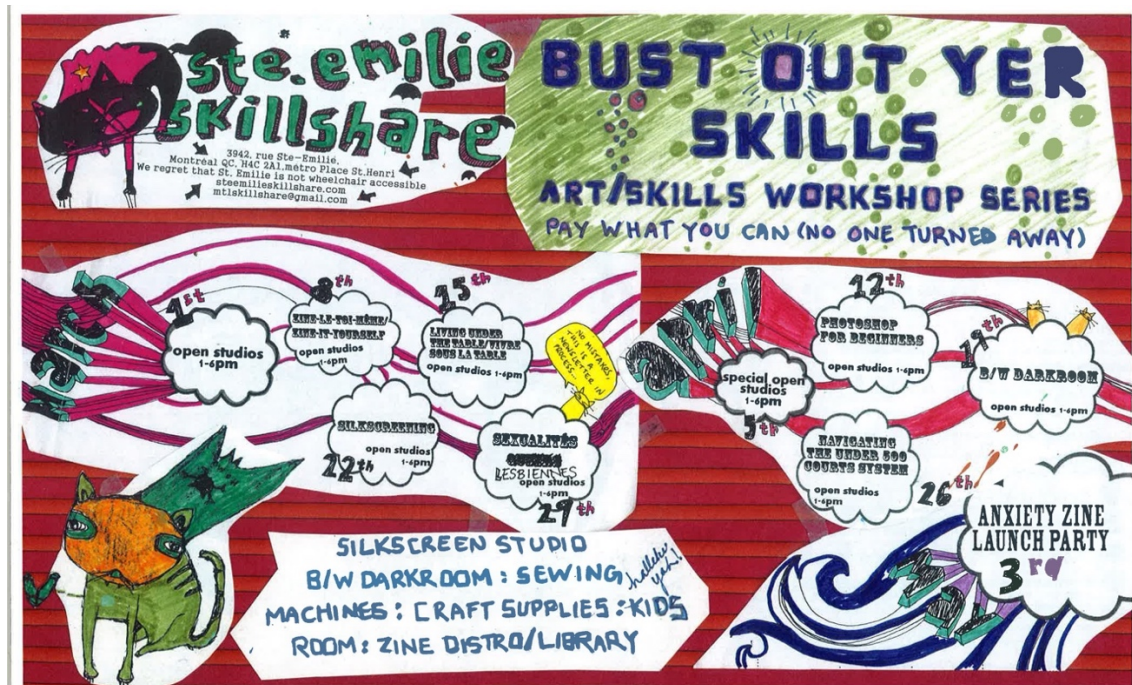 ste.emilie
skillshare
3942, rue Ste-Emilie,
Montréal QC, H4C 2A1.métro Place St.Henri
We regret that St. Emilie is not wheelchair accessible
steemilieskillshare.com
mtlskillshare@gmail.com
BUST OUT YER
SKILLS
ART/SKILLS WORKSHOP SERIES
PAY WHAT YOU CAN (NO ONE TURNED AWAY)
march
1st
open studios
1-6pm
8th
ZINE-LE-TOI-MÊME/
ZINE-IT-YOURSELF
open studios
1-6pm
15th
LIVING UNDER
THE TABLE/VIVRE
SOUS LA TABLE
open studios 1-6pm
SILKSCREENING
open studios
1-6pm
22th
NO MISTAKES,
THIS IS A
NEWSLETTER IN
PROCESS...
SEXUALITÉS
LESBIENNES
open studios
1-6pm
29th
april
special open
studios
1-6pm
5th
12th
PHOTOSHOP
FOR BEGINNERS
open studios 1-6pm
19th
B/W DARKROOM
open studios 1-6pm
NAVIGATING
THE UNDER 500
COURTS SYSTEM
open studios
1-6pm
26th
ANXIETY ZINE
LAUNCH PARTY
3rd
May
SILKSCREEN STUDIO
B/W DARKROOM : SEWING
MACHINES : CRAFT SUPPLIES : KIDS
ROOM : ZINE DISTRO/LIBRARY